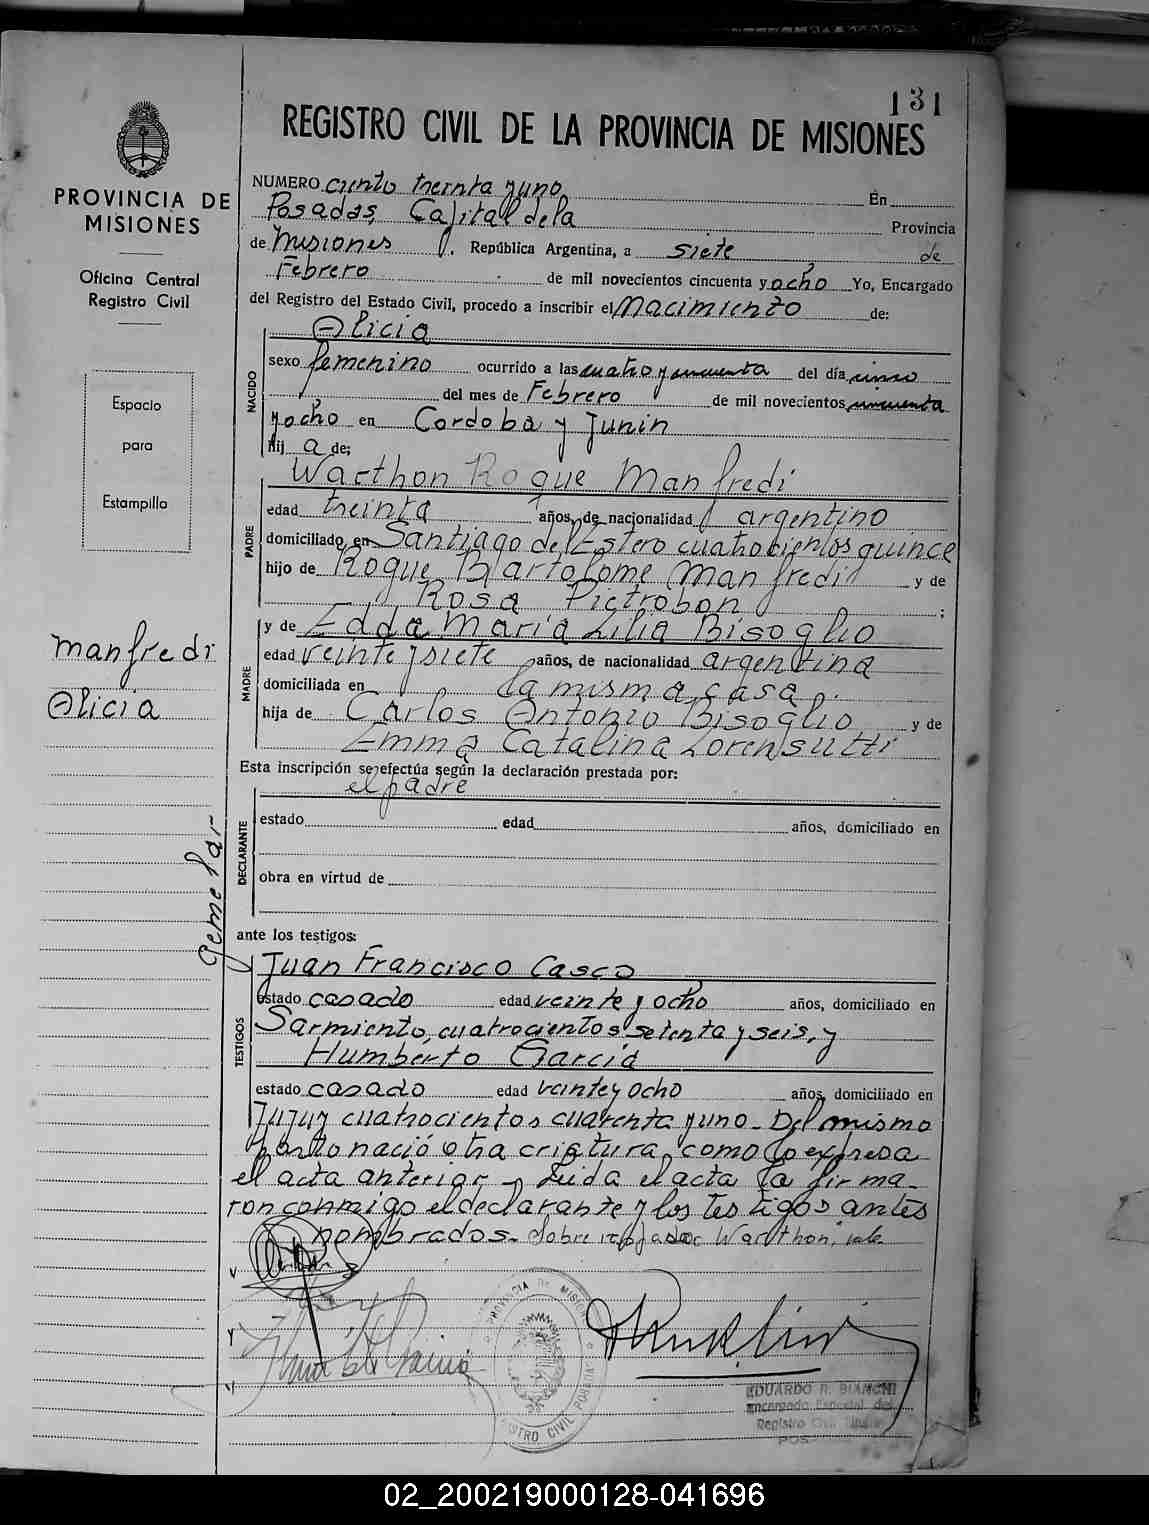 131
REGISTRO CIVIL DE LA PROVINCIA DE MISIONES
PROVINCIA DE
MISIONES
Oficina Central
Registro Civil
Espacio
para
Estampilla
manfredi
Alicia
Gemelar
NUMERO ciento treinta y uno En
Posadas, Capital de la Provincia
de Misiones, República Argentina, a siete de
Febrero de mil novecientos cincuenta y ocho Yo, Encargado
del Registro del Estado Civil, procedo a inscribir el Nacimiento de:
NACIDO
Alicia
sexo femenino ocurrido a las cuatro y cincuenta del día cinco
del mes de Febrero de mil novecientos cincuenta
y ocho en Cordoba y Junin
Hij a de;
PADRE
Warthon Roque Manfredi
edad treinta años, de nacionalidad argentino
domiciliado en Santiago del Estero cuatrocientos quince
hijo de Roque Bartolome Manfredi y de
Rosa Pietrobon ;
MADRE
y de Edda Maria Lilia Bisoglio
edad veinte y siete años, de nacionalidad argentina
domiciliada en la misma casa.
hija de Carlos Antonio Bisoglio y de
Emma Catalina Lorensutti
Esta inscripción se efectúa según la declaración prestada por:
el padre
DECLARANTE
estado edad años, domiciliado en
obra en virtud de
ante los testigos:
TESTIGOS
Juan Francisco Casco
estado casado edad veinte y ocho años, domiciliado en
Sarmiento, cuatrocientos setenta y seis, y
Humberto Garcia
estado casado edad veinte y ocho años, domiciliado en
Jujuy cuatrocientos cuarenta y uno - Del mismo
parto nació otra criatura, como lo expresa
el acta anterior - Leida el acta la firma-
ron conmigo el declarante y los testigos antes
nombrados - Sobre raspado: Warthon, vale
PROVINCIA DE MISIONES
REGISTRO CIVIL POSADAS
EDUARDO R. BIANCHI
Encargado Especial del
Registro Civil
POS
02_200219000128-041696